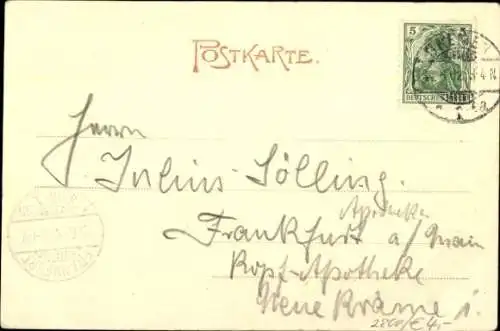 POSTKARTE.
5
DEUTSCHES REICH
Herrn
Julius Sölling.
Apotheker
Frankfurt a/Main
Ropf-Apotheke
Neue Kräme